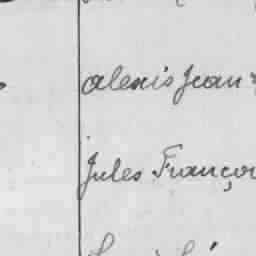 alexis Jean
Jules Françoi